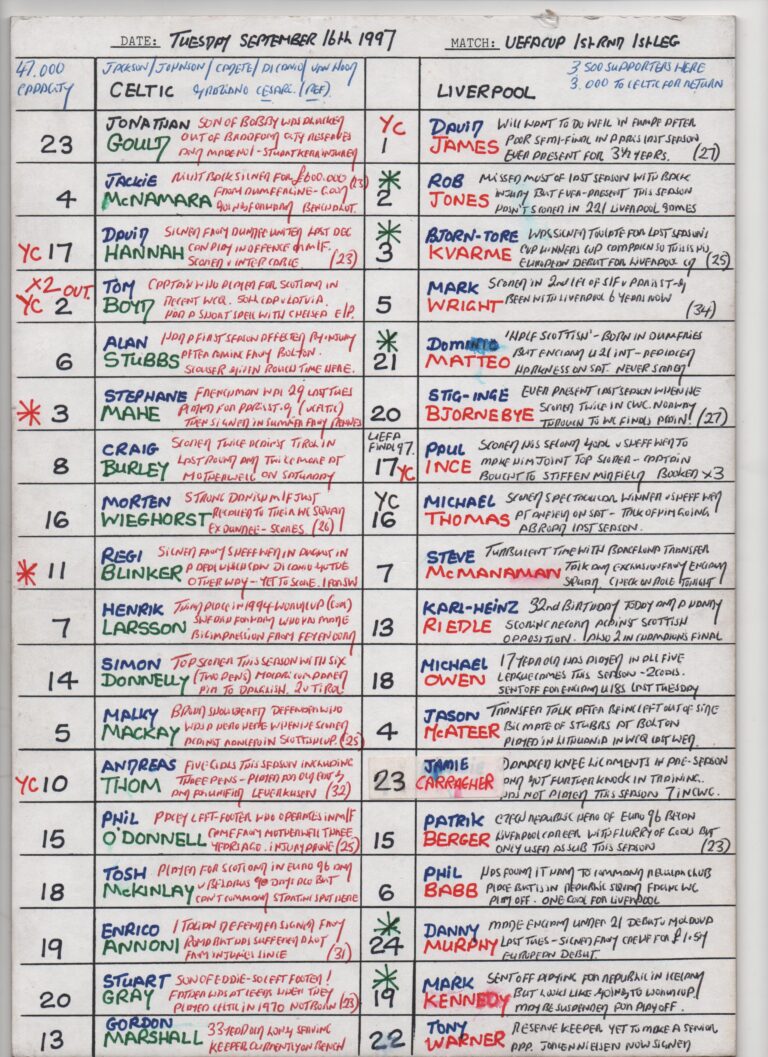 DATE: TUESDAY SEPTEMBER 16th 1997 MATCH: UEFA CUP 1st RND 1st LEG
47.000 CAPACITY
JACKSON/JOHNSON/CADETE/DI CANIO/VAN HOOY
GRAZIANO CESARI. (REF)
CELTIC
LIVERPOOL
3 500 SUPPORTERS HERE
3.000 TO CELTIC FOR RETURN
23 JONATHAN GOULD
SON OF BOBBY WAS
OUT OF BRADFORD CITY RESERVES
STUART KERR INJURED
YC 1 DAVID JAMES
WILL WANT TO DO WELL IN EUROPE AFTER
POOR SEMI-FINAL IN PARIS LAST SEASON
EVER PRESENT FOR 3½ YEARS. (27)
4 JACKIE McNAMARA
RIGHT BACK SIGNED FOR £600.000 (23)
FROM DUNFERMLINE - GOOD
GOING FORWARD
2 ROB JONES
MISSED MOST OF LAST SEASON WITH BACK
INJURY BUT EVER-PRESENT THIS SEASON
HASN'T SCORED IN 221 LIVERPOOL GAMES
YC 17 DAVID HANNAH
SIGNED FROM DUNDEE UNITED LAST DEC
CAN PLAY IN DEFENCE OR M/F.
SCORED V INTER CABLE (23)
3 BJORN-TORE KVARME
WAS SIGNED TOO LATE FOR LAST SEASON'S
CUP WINNERS CUP CAMPAIGN SO THIS IS HIS
EUROPEAN DEBUT FOR LIVERPOOL (25)
X2 OUT.
YC 2 TOM BOYD
CAPTAIN WHO PLAYED FOR SCOTLAND IN
RECENT WCQ. 50th CAP V LATVIA
HAD A SHORT SPELL WITH CHELSEA
5 MARK WRIGHT
SCORED IN 2nd LEG OF S/F V PARIS ST-G
BEEN WITH LIVERPOOL 6 YEARS NOW
(34)
6 ALAN STUBBS
HAD A FIRST SEASON AFFECTED BY INJURY
AFTER FROM BOLTON.
SCOUSER GIVEN ROUGH TIME HERE.
21 DOMINIC MATTEO
'HALF SCOTTISH' - BORN IN DUMFRIES
BUT ENGLAND U21 INT - REPLACED
HARKNESS ON SAT. NEVER SCORED
3 STEPHANE MAHE
FRENCHMAN WAS 29 LAST TUES
PLAYED FOR PARIS ST-G (V CELTIC)
THEN SIGNED IN SUMMER FROM RENNES
20 STIG-INGE BJORNEBYE
EVER PRESENT LAST SEASON WHEN HE
SCORED TWICE IN CWC. NORWAY
THROUGH TO WC FINALS AGAIN! (27)
8 CRAIG BURLEY
SCORED TWICE AGAINST TIROL IN
LAST ROUND AND TWICE MORE AT
MOTHERWELL ON SATURDAY
UEFA FINAL 97.
17 YC PAUL INCE
SCORED HIS SECOND GOAL V SHEFF WED TO
MAKE HIM JOINT TOP SCORER - CAPTAIN
BOUGHT TO STIFFEN MIDFIELD BOOKED X3
16 MORTEN WIEGHORST
STRONG DANISH M/F JUST
RECALLED TO THEIR WC SQUAD
EX DUNDEE - SCORES (26)
YC 16 MICHAEL THOMAS
SCORED SPECTACULAR WINNER V SHEFF WED
AT ANFIELD ON SAT - TALK OF HIM GOING
ABROAD LAST SEASON.
11 REGI BLINKER
SIGNED FROM SHEFF WED IN AUGUST IN
A DEAL WHICH SAW DI CANIO GO THE
OTHER WAY - YET TO SCORE.
7 STEVE McMANAMAN
TURBULENT TIME WITH BARCELONA TRANSFER
TALK AND EXCLUSION FROM ENGLAND
SQUAD. CHECK ON ROLE TONIGHT
7 HENRIK LARSSON
THIRD PLACE IN 1994 WORLD CUP (GOAL)
SWEDISH FORWARD WHO HAS MADE
BIG IMPRESSION FROM FEYENOORD
13 KARL-HEINZ RIEDLE
32nd BIRTHDAY TODAY AND A HANDY
SCORING RECORD AGAINST SCOTTISH
OPPOSITION. ALSO 2 IN CHAMPIONS FINAL
14 SIMON DONNELLY
TOP SCORER THIS SEASON WITH SIX
(TWO PENS) COMPARED
HIM TO DALGLISH. 2 V TIROL
18 MICHAEL OWEN
17 YEAR OLD HAS PLAYED IN ALL FIVE
LEAGUE GAMES THIS SEASON - 2 GOALS.
SENT OFF FOR ENGLAND U18S LAST TUESDAY
5 MALKY MACKAY
BROAD SHOULDERED DEFENDER WHO
WAS A HERO HERE WHEN HE SCORED
AGAINST RANGERS IN SCOTTISH CUP. (25)
4 JASON McATEER
TRANSFER TALK AFTER BEING LEFT OUT OF SIDE
BIG MATE OF STUBBS AT BOLTON
PLAYED IN LITHUANIA IN WCQ LAST WED.
YC 10 ANDREAS THOM
FIVE GOALS THIS SEASON INCLUDING
THREE PENS - PLAYED FOR OLD EAST G
AND FOR UNIFIED LEVERKUSEN (32)
23 JAMIE CARRAGHER
DAMAGED KNEE LIGAMENTS IN PRE-SEASON
AND GOT FURTHER KNOCK IN TRAINING.
HAS NOT PLAYED THIS SEASON 7 IN CWC.
15 PHIL O'DONNELL
PACEY LEFT-FOOTER WHO OPERATES IN M/F
CAME FROM MOTHERWELL THREE
YEARS AGO. INJURY PRONE (25)
15 PATRIK BERGER
CZECH REPUBLIC HERO OF EURO 96 BEGAN
LIVERPOOL CAREER WITH FLURRY OF GOALS BUT
ONLY USED AS SUB THIS SEASON (23)
18 TOSH McKINLAY
PLAYED FOR SCOTLAND IN EURO 96 AND
V BELARUS 90 DAYS AGO BUT
CAN'T COMMAND STARTING SPOT HERE
6 PHIL BABB
HAS FOUND IT HARD TO COMMAND REGULAR CLUB
PLACE BUT IS IN REPUBLIC SQUAD FACING WC
PLAY OFF. ONE GOAL FOR LIVERPOOL
19 ENRICO ANNONI
ITALIAN DEFENDER SIGNED FROM
ROMA BUT HAS SUFFERED A LOT
FROM INJURIES SINCE (31)
24 DANNY MURPHY
MADE ENGLAND UNDER 21 DEBUT V MOLDOVA
LAST TUES - SIGNED FROM CREWE FOR £1.5M
EUROPEAN DEBUT.
20 STUART GRAY
SON OF EDDIE - SO LEFT FOOTED!
FATHER WAS AT LEEDS WHEN THEY
PLAYED CELTIC IN 1970 NOT BORN (23)
19 MARK KENNEDY
SENT OFF PLAYING FOR REPUBLIC IN ICELAND
BUT LOOKS LIKE GOING TO WORLD CUP
MAY BE SUSPENDED FOR PLAY OFF.
13 GORDON MARSHALL
33 YEAR OLD LONG SERVING
KEEPER CURRENTLY ON BENCH
22 TONY WARNER
RESERVE KEEPER YET TO MAKE A SENIOR
APP. JORGEN NIELSEN NOW SIGNED